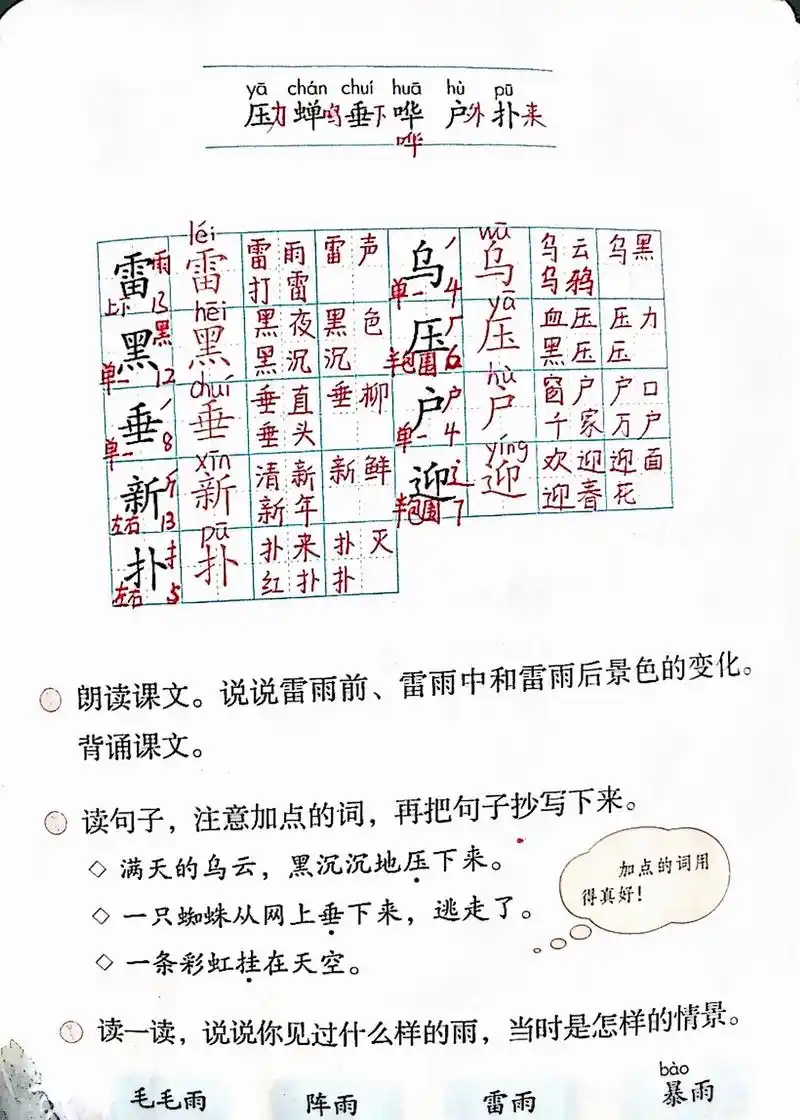 yā chán chuí huā hù pū
压力 蝉鸣 垂下 哗哗 户外 扑来
léi wū
雷 雨 雷 雷雨 雷声 乌 丿 乌 乌云 乌黑
上下 13 打雷 单一 4 乌鸦
hēi yā
黑 黑 黑 黑夜 黑色 压 厂 压 血压 压力
单一 12 黑沉沉 半包围 6 黑压压
chuí hù
垂 丿 垂 垂直 垂柳 户 户 户 窗户 户口
单一 8 垂头 单一 4 千家万户
xīn yíng
新 斤 新 清新 新鲜 迎 辶 迎 欢迎 迎面
左右 13 新年 半包围 7 迎春花
pū
扑 扌 扑 扑来 扑灭
左右 5 红扑扑
朗读课文。说说雷雨前、雷雨中和雷雨后景色的变化。
背诵课文。
读句子，注意加点的词，再把句子抄写下来。
◇ 满天的乌云，黑沉沉地压下来。
◇ 一只蜘蛛从网上垂下来，逃走了。
◇ 一条彩虹挂在天空。
加点的词用
得真好！
读一读，说说你见过什么样的雨，当时是怎样的情景。
bào
毛毛雨 阵雨 雷雨 暴雨